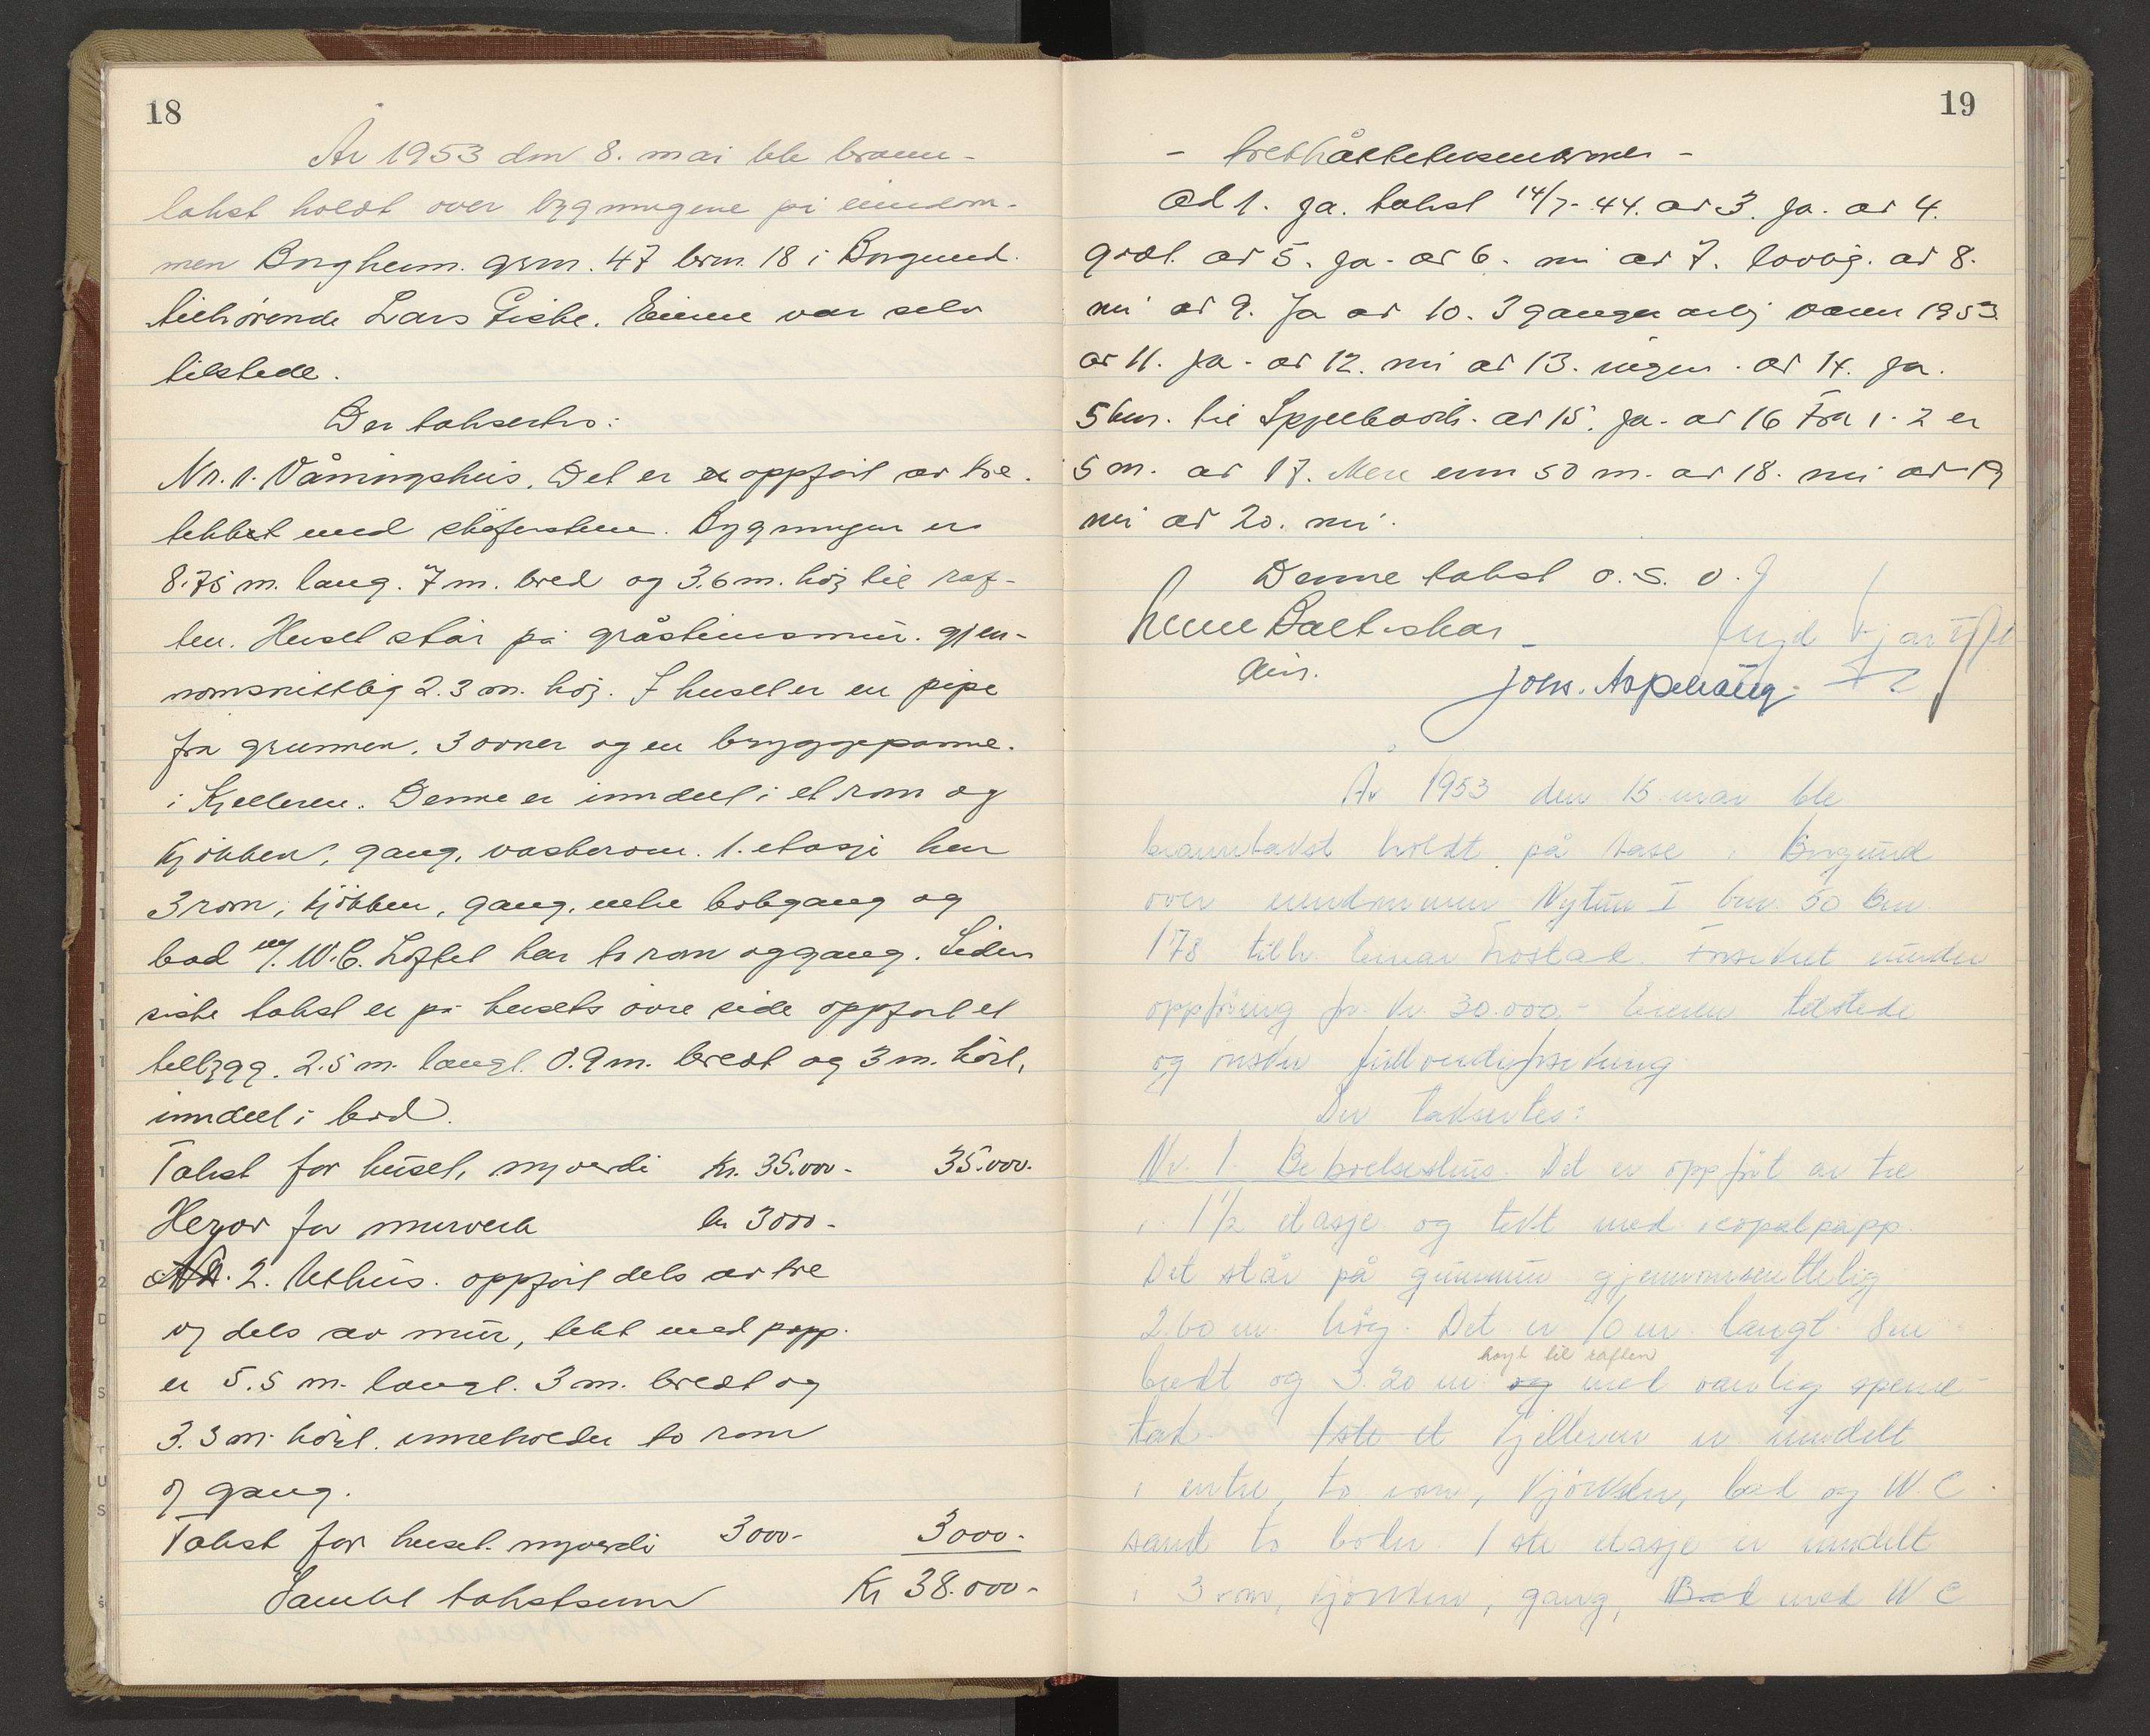 18
År 1953 den 8. mai ble brann-
takst holdt over bygningene på eiendom-
men Borgheim. grn. 47 brn. 18 i Borgund.
tilhörende Lars Giske. Eieren var selv
tilstede.
Der taksertes:
Nr. 1. Våningshus. Det er oppfört av tre.
tekket med skifersten. Bygningen er
8.75 m. lang. 7 m. bred og 3.6 m. höi til raf-
ten. Huset står på gråsteinsmur. gjen-
nomsnittlig 2.3 m. höi. I huset er en pipe
fra grunnen, 3 ovner og en bryggepanne.
i Kjelleren. Denne er inndelt i et rom og
kjökken, gang, vaskerom. 1. etasje har
3 rom, kjökken, gang, bakgang og
bad m/. W.C. Loftet har to rom og gang. Siden
siste takst er på husets övre side oppfört et
tilbygg. 2.5 m. langt. 0.9 m. bredt og 3 m. höit,
inndelt i bod.
Takst for huset, nyverdi Kr. 35.000.- 35.000.
Herav for murverk kr 3000-
2. Uthus. oppfört dels av tre
og dels av mur, tekt med papp.
er 5.5 m. langt. 3 m. bredt og
3.3 m. höit. inneholder to rom
og gang.
Takst for huset. nyverdi 3000- 3000-
Samlet takstsum Kr 38.000-
19
- Ildsikkerheten -
Ad 1. Ja. takst 14/7-44. ad 3. Ja. ad 4.
godt. ad 5. Ja. ad 6. nei ad 7. lovlig. ad 8.
nei ad 9. Ja ad 10. 3 ganger årlig 1953
ad 11. Ja. ad 12. nei ad 13. ingen. ad 14. Ja.
5 km. til Spjelkavik. ad 15. Ja. ad 16 Fra 1-2 er
5 m. ad 17. Mere enn 50 m. ad 18. nei ad 19
nei ad 20. nei.
Denne takst o.s.v.
Johs. Aspehaug
År 1953 den 15 mai ble
branntakst holdt på Aase i Borgund
over eiendommen Nytun I bnr. 50 bnr.
178 tilh. Einar Frostad. Forsikret under
oppföring for kr. 30.000,- Eieren tilstede
og önsker fullverdiforsikring.
Der taksertes:
Nr. 1 Beboelseshus. Det er oppfört av tre
i 1½ etasje og tekt med icopalpapp.
Det står på grunnmur gjennomsnittelig
2.60 m höy. Det er 10 m. langt 8 m
bredt og 3.20 m. og höyt til raften med vanlig sperre-
tak. 1ste et Kjelleren er inndelt
i entre, to rom, kjökken, bad og W.C.
samt to boder. 1ste etasje er inndelt
i 3 rom, kjökken, gang, Bad med W C